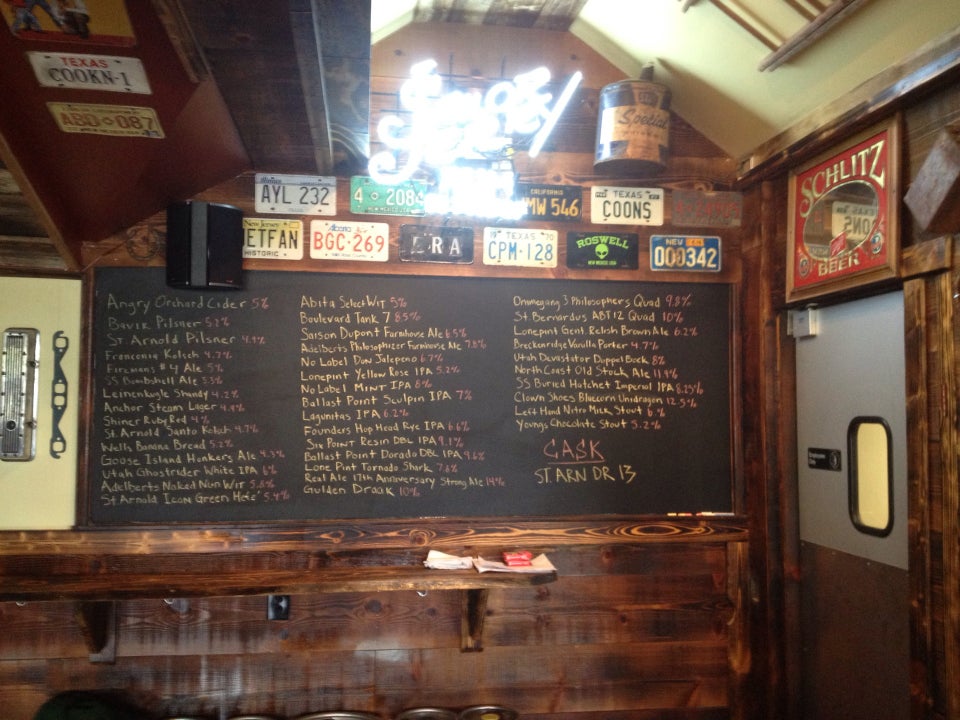 TEXAS
COOKN-1
ABD 087
AYL 232
4 2084
NEW MEXICO
CALIFORNIA
MW 546
TEXAS
COONS
Special
SCHLITZ
BEER
New Jersey
ETFAN
HISTORIC
BGC 269
ERA
TEXAS
CPM-128
ROSWELL
NEW MEXICO USA
NEV
000342
Angry Orchard Cider 5%
Bavik Pilsner 5.2%
St Arnold Pilsner 4.9%
Franconia Kolsch 4.7%
Firemans #4 Ale 5%
SS Bombshell Ale 5.3%
Leinenkugle Shandy 4.2%
Anchor Steam Lager 4.9%
Shiner Ruby Red 4%
St. Arnold Santo Kolsch 4.7%
Wells Banana Bread 5.2%
Goose Island Honkers Ale 4.3%
Utah Ghostrider White IPA 6%
Adelberts Naked Nun Wit 5.8%
St Arnold Icon Green Hefe' 5.4%
Abita Select Wit 5%
Boulevard Tank 7 8.5%
Saison Dupont Farmhouse Ale 6.5%
Adelberts Philosophizer Farmhouse Ale 7.8%
No Label Don Jalepeno 6.7%
Lonepint Yellow Rose IPA 5.2%
No Label Mint IPA 8%
Ballast Point Sculpin IPA 7%
Lagunitas IPA 6.2%
Founders Hop Head Rye IPA 6.6%
Six Point Resin DBL IPA 9.1%
Ballast Point Dorado DBL IPA 9.6%
Lone Pint Tornado Shark 7.6%
Real Ale 17th Anniversary Strong Ale 14%
Gulden Draak 10%
Ommegang 3 Philosophers Quad 9.8%
St Bernardus ABT 12 Quad 10%
Lonepint Gent. Relish Brown Ale 6.2%
Breckenridge Vanilla Porter 4.7%
Utah Devastator Duppel Bock 8%
North Coast Old Stock Ale 11.9%
SS Buried Hatchet Imperial IPA 8.25%
Clown Shoes Blaccorn Unidragon 12.5%
Left Hand Nitro Milk Stout 6%
Youngs Chocolate Stout 5.2%
CASK
ST. ARN DR 13